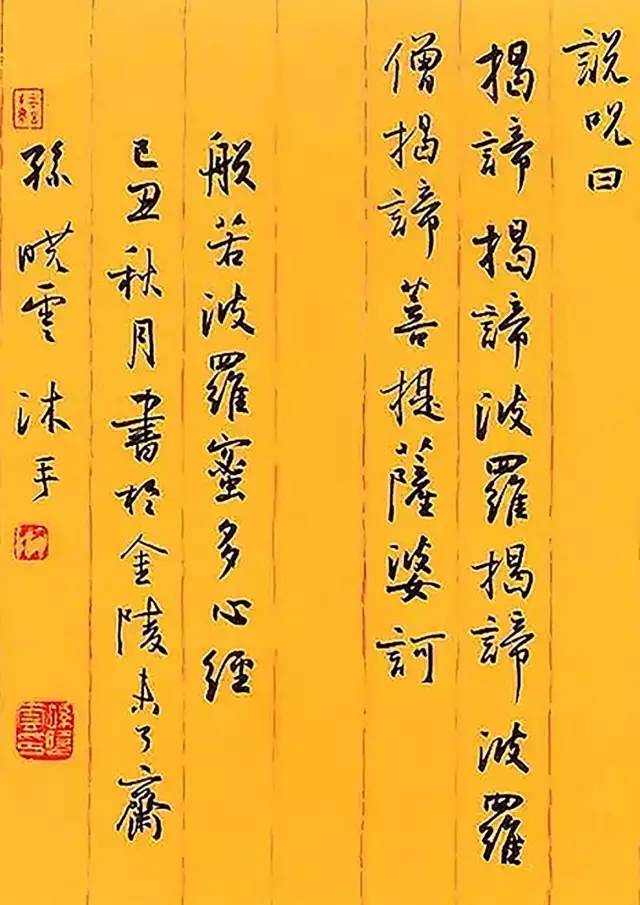 説呪曰
揭諦揭諦波羅揭諦波羅
僧揭諦菩提薩婆訶
般若波羅蜜多心經
己丑秋月書於金陵未了齋
孫曉雲沐手